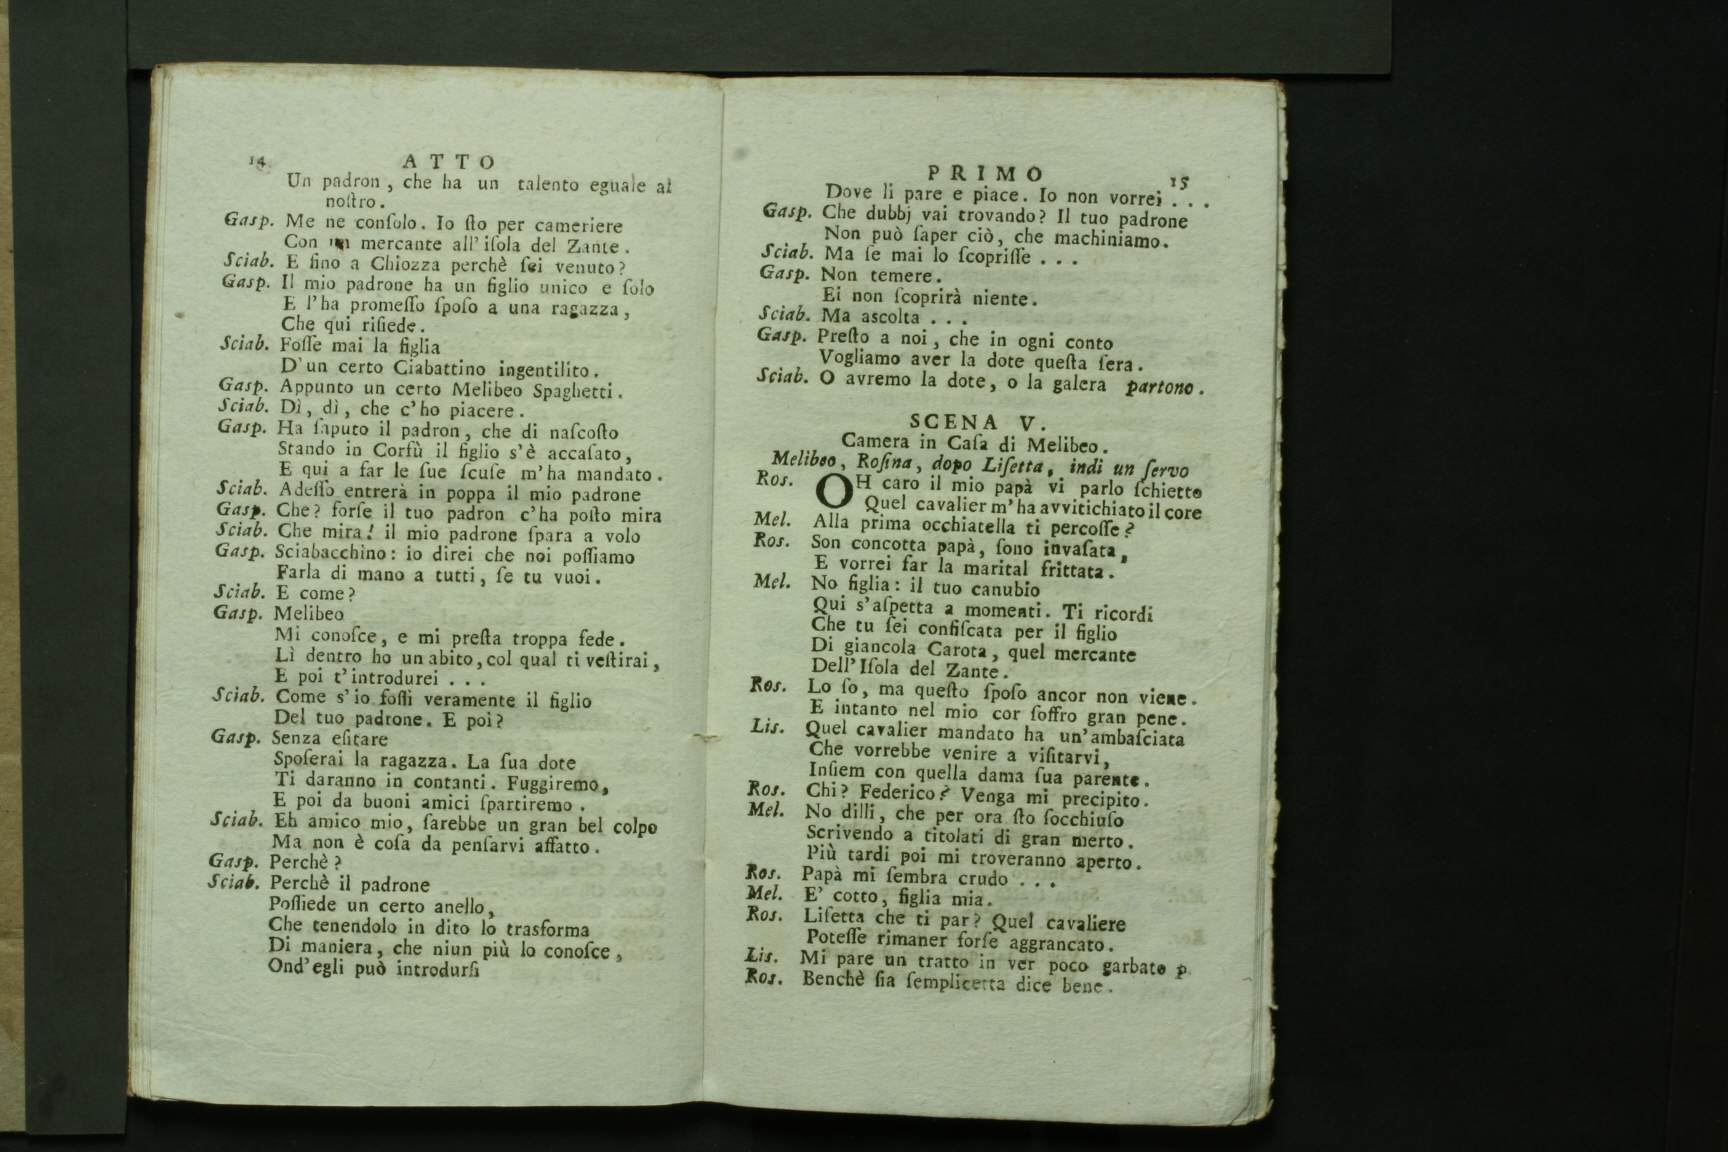 14 ATTO
Un padron, che ha un talento eguale al
noſtro.
Gasp. Me ne conſolo. Io ſto per cameriere
Con un mercante all'iſola del Zante.
Sciab. E fino a Chiozza perchè ſei venuto?
Gasp. Il mio padrone ha un figlio unico e ſolo
E l'ha promeſſo ſpoſo a una ragazza,
Che qui riſiede.
Sciab. Foſſe mai la figlia
D'un certo Ciabattino ingentilito.
Gasp. Appunto un certo Melibeo Spaghetti.
Sciab. Dì, dì, che c'ho piacere.
Gasp. Ha ſaputo il padron, che di naſcoſto
Stando in Corfù il figlio s'è accaſato,
E qui a far le ſue ſcuſe m'ha mandato.
Sciab. Adeſſo entrerà in poppa il mio padrone
Gasp. Che? forſe il tuo padron c'ha poſto mira
Sciab. Che mira! il mio padrone ſpara a volo
Gasp. Sciabacchino: io direi che noi poſſiamo
Farla di mano a tutti, ſe tu vuoi.
Sciab. E come?
Gasp. Melibeo
Mi conoſce, e mi preſta troppa fede.
Lì dentro ho un abito, col qual ti veſtirai,
E poi t'introdurei . . .
Sciab. Come s'io foſſi veramente il figlio
Del tuo padrone. E poi?
Gasp. Senza eſitare
Spoſerai la ragazza. La ſua dote
Ti daranno in contanti. Fuggiremo,
E poi da buoni amici ſpartiremo.
Sciab. Eh amico mio, ſarebbe un gran bel colpo
Ma non è coſa da penſarvi affatto.
Gasp. Perchè?
Sciab. Perchè il padrone
Poſſiede un certo anello,
Che tenendolo in dito lo trasforma
Di maniera, che niun più lo conoſce,
Ond'egli può introdurſi
PRIMO 15
Dove li pare e piace. Io non vorrei . . .
Gasp. Che dubbj vai trovando? Il tuo padrone
Non può ſaper ciò, che machiniamo.
Sciab. Ma ſe mai lo ſcopriſſe . . .
Gasp. Non temere.
Ei non ſcoprirà niente.
Sciab. Ma ascolta . . .
Gasp. Preſto a noi, che in ogni conto
Vogliamo aver la dote queſta ſera.
Sciab. O avremo la dote, o la galera partono.
SCENA V.
Camera in Caſa di Melibeo.
Melibeo, Roſina, dopo Liſetta, indi un ſervo
Ros. OH caro il mio papà vi parlo ſchietto
Quel cavalier m'ha avvitichiato il core
Mel. Alla prima occhiatella ti percoſſe?
Ros. Son concotta papà, ſono invaſata,
E vorrei far la marital frittata.
Mel. No figlia: il tuo canubio
Qui s'aſpetta a momenti. Ti ricordi
Che tu ſei confiſcata per il figlio
Di giancola Carota, quel mercante
Dell'Iſola del Zante.
Ros. Lo ſo, ma queſto ſpoſo ancor non viene.
E intanto nel mio cor ſoffro gran pene.
Lis. Quel cavalier mandato ha un'ambaſciata
Che vorrebbe venire a viſitarvi,
Inſiem con quella dama ſua parente.
Ros. Chi? Federico? Venga mi precipito.
Mel. No dilli, che per ora ſto ſocchiuſo
Scrivendo a titolati di gran merto.
Più tardi poi mi troveranno aperto.
Ros. Papà mi ſembra crudo . . .
Mel. E' cotto, figlia mia.
Ros. Liſetta che ti par? Quel cavaliere
Poteſſe rimaner forſe aggrancato.
Lis. Mi pare un tratto in ver poco garbato p
Ros. Benchè ſia ſemplicetta dice bene.